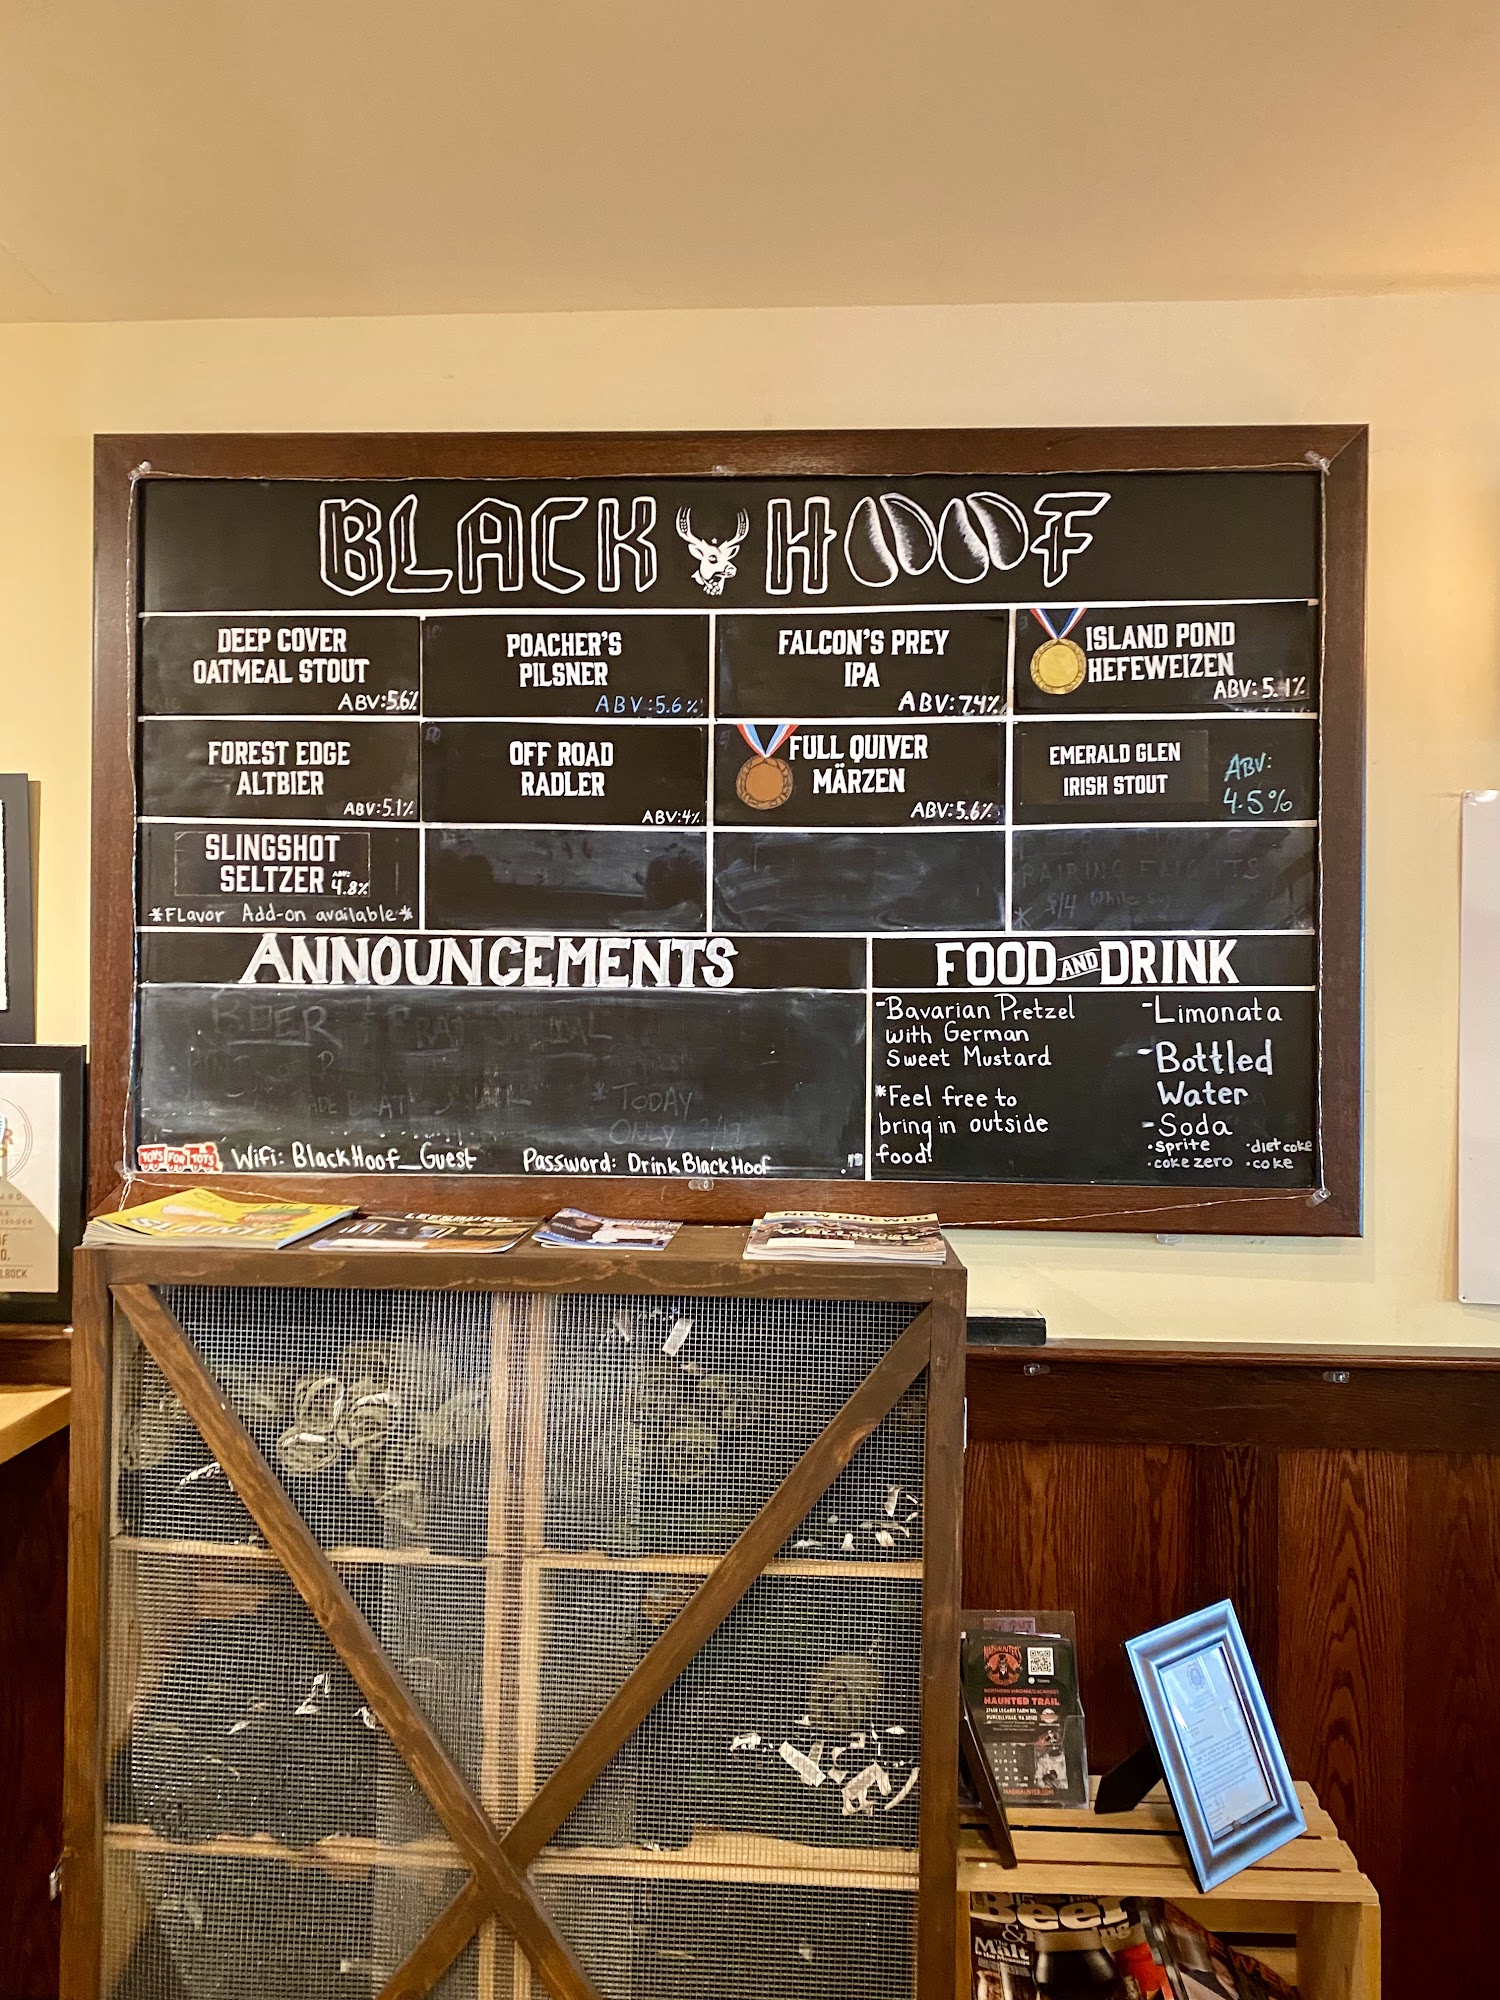 BLACK HOOF
DEEP COVER
OATMEAL STOUT
ABV:5.6%
POACHER'S
PILSNER
ABV:5.6%
FALCON'S PREY
IPA
ABV:7.4%
ISLAND POND
HEFEWEIZEN
ABV:5.1%
FOREST EDGE
ALTBIER
ABV:5.1%
OFF ROAD
RADLER
ABV:4%
FULL QUIVER
MÄRZEN
ABV:5.6%
EMERALD GLEN
IRISH STOUT
ABV:
4.5%
SLINGSHOT
SELTZER
ABV: 4.8%
*FLavor Add-on available*
PAIRING FLIGHTS
* $14 While
ANNOUNCEMENTS
BEER
*TODAY
ONLY
TOYS FOR TOTS
WiFi: BlackHoof_Guest
Password: DrinkBlackHoof
FOOD AND DRINK
-Bavarian Pretzel
with German
Sweet Mustard
*Feel free to
bring in outside
food!
-Limonata
-Bottled
Water
-Soda
·sprite ·diet coke
·coke zero ·coke
LEESBURG
NEW BREWER
LBOCK
HAUNTED TRAIL
PURCELLVILLE, VA
Beer
&
Malt